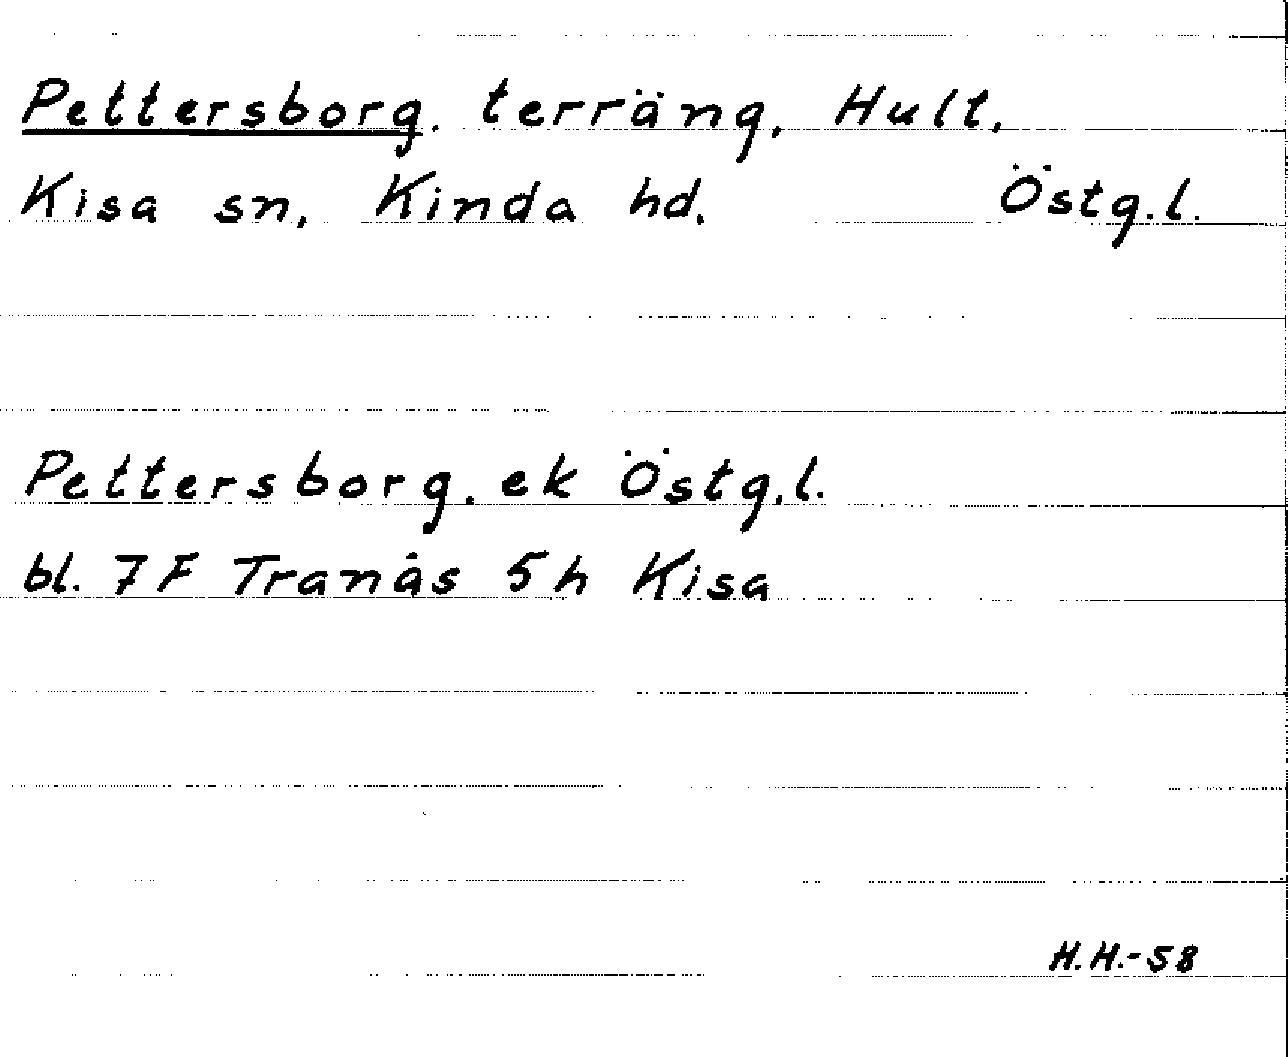 Pettersborg. terräng, Hult,
Kisa sn, Kinda hd. Östg.l.
Pettersborg. ek Östg.l.
bl. 7F Tranås 5h Kisa
H.H.-58